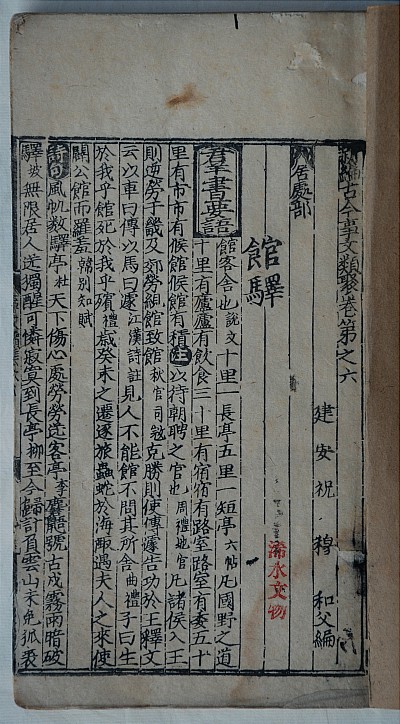 新編古今事文類聚卷第之六
建安祝 穆 和父編
居處部
館驛
羣書要語 館客舍也說文十里一長亭五里一短亭六帖凡國野之道
十里有廬廬有飲食三十里有宿宿有路室路室有委五十
里有市市有候館候館有積注以待朝聘之官也周禮地官凡諸侯入王
則逆勞于畿及郊勞館致館秋官司克勝則使傳遽告功於王釋文
云以車曰傳以馬曰遽江漢詩註見人不能館不問其所舍曲禮子曰生
於我乎館死於我乎殯禮歲癸未之遷逐旅蟲蛇於海陬遇夫人之來使
闢公館而羅羞韓別知賦
風帆數驛亭杜天下傷心處勞勞送客亭李鼯號古戍霧雨暗破
驛坡無限居人送獨醒可憐寂寞到長亭柳至今歸計負雲山未免孤衾
浠水文物